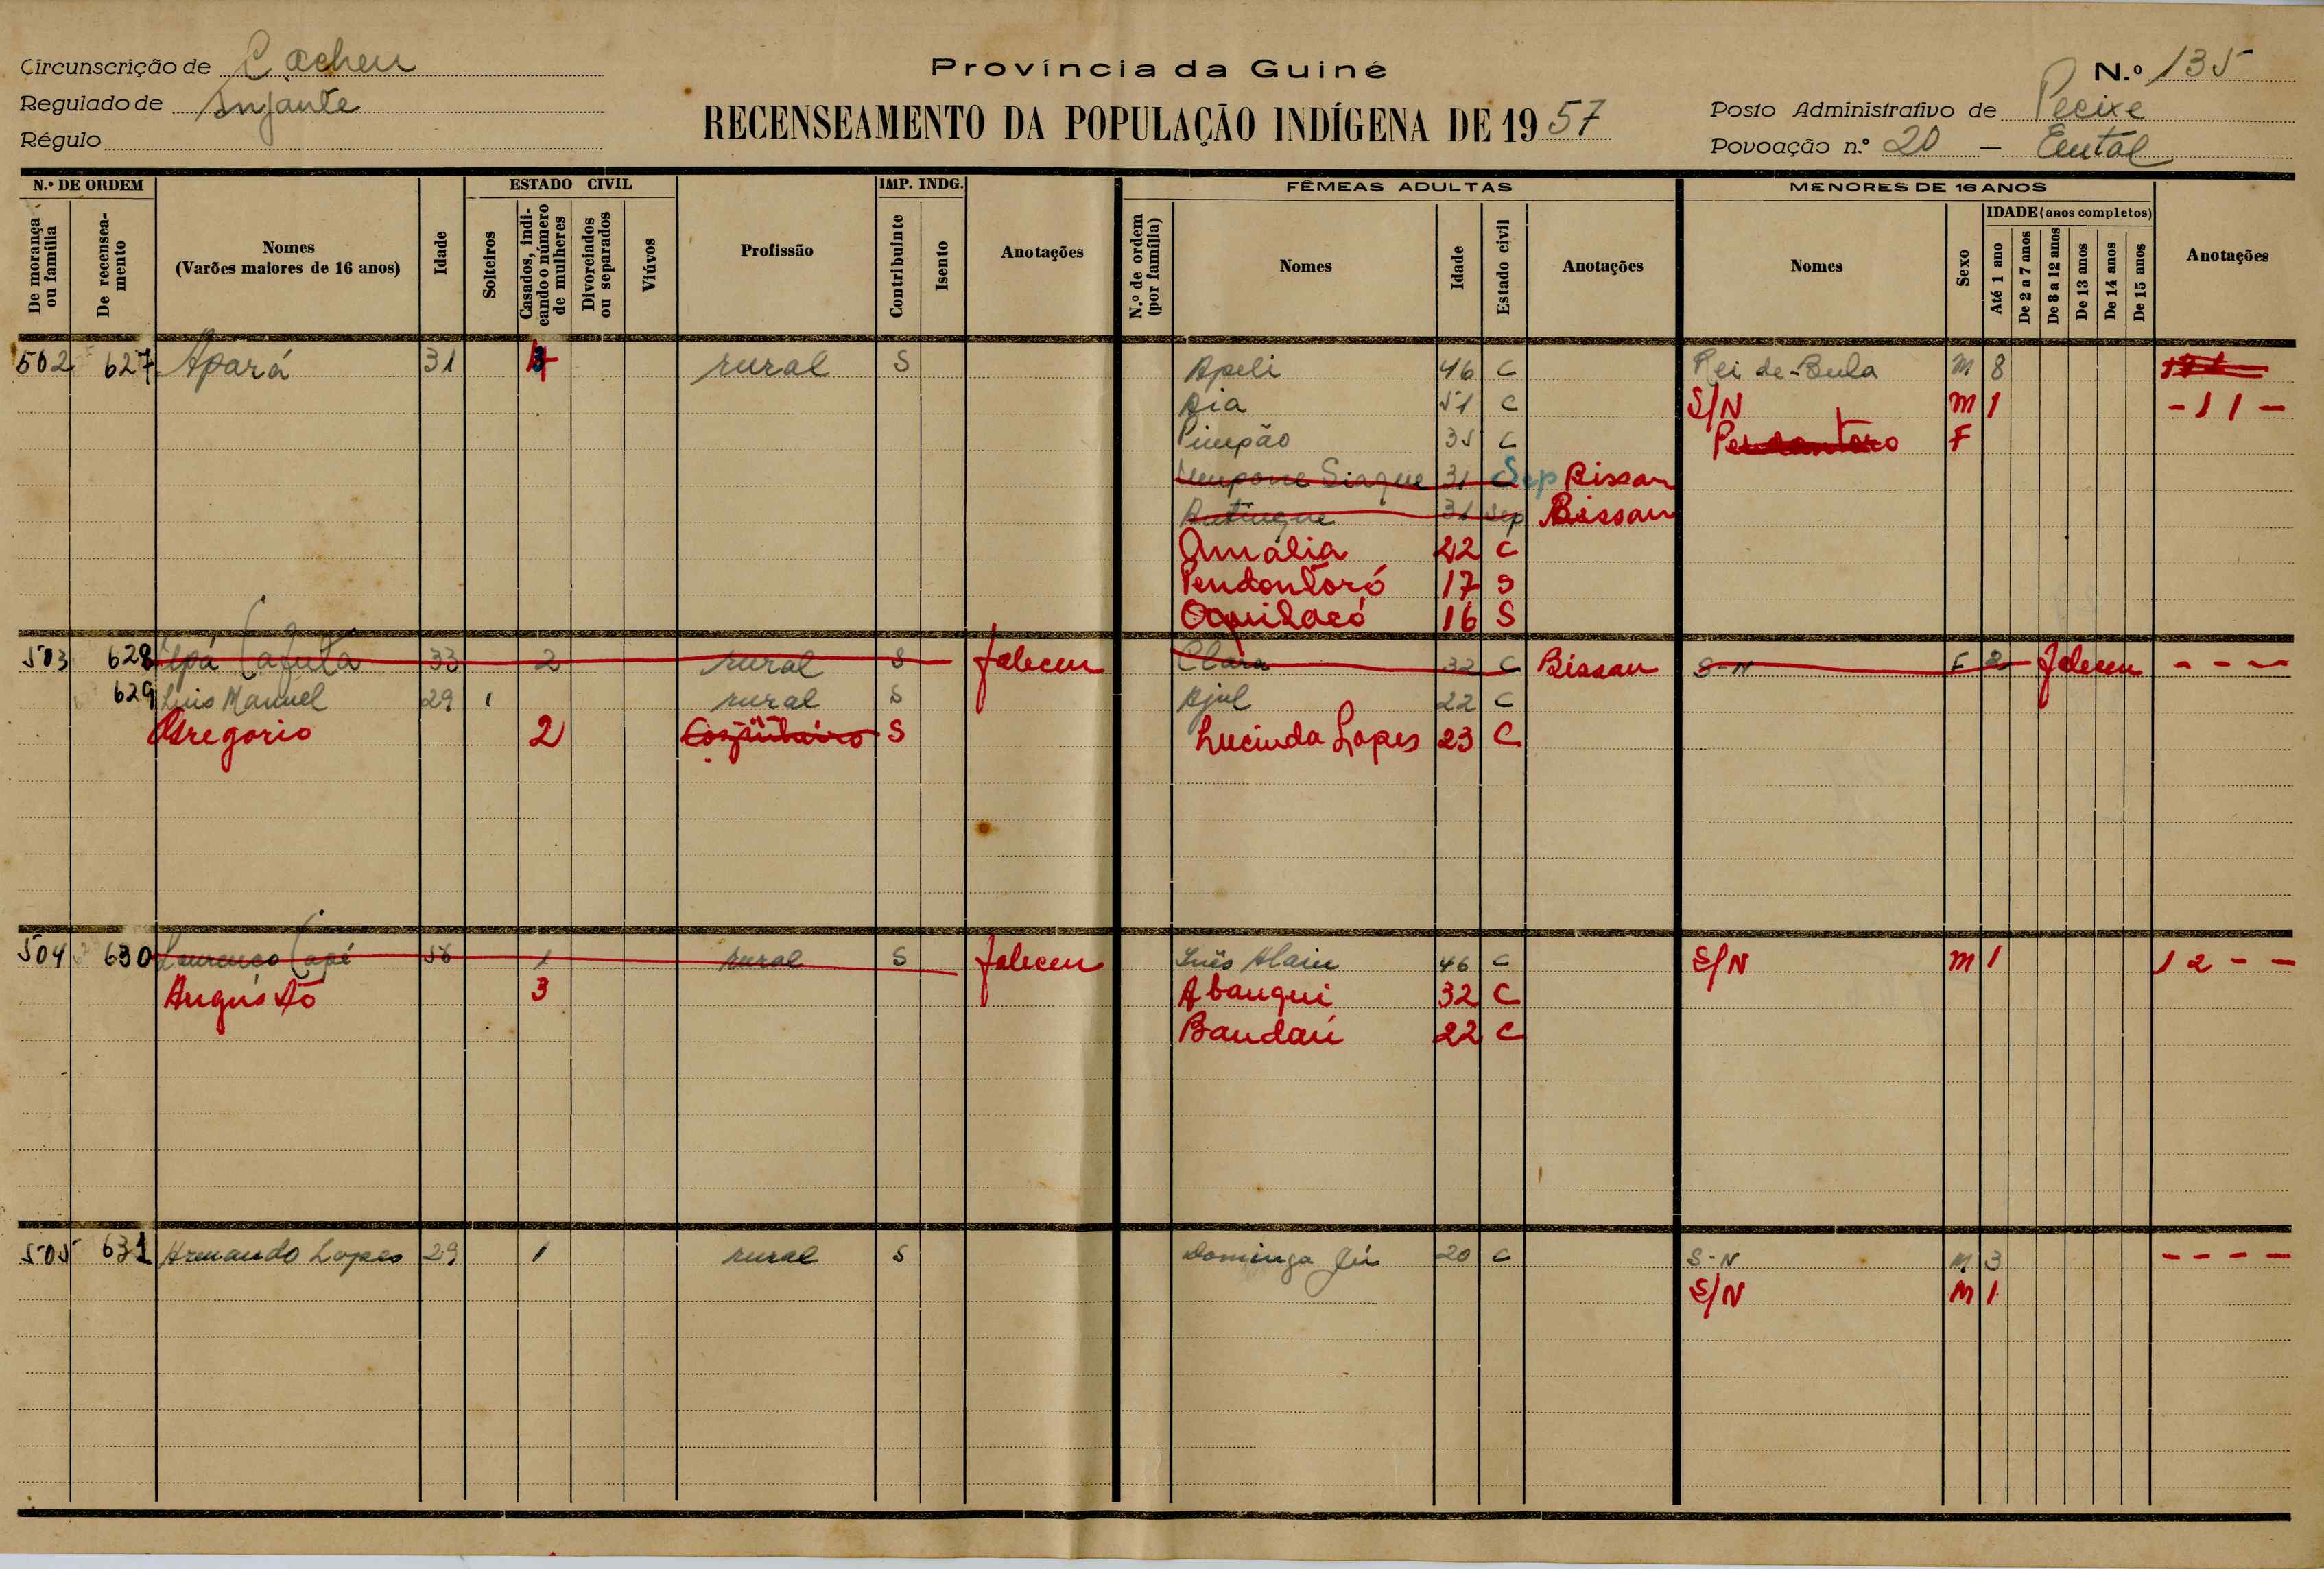 Circunscrição de Cacheu
Regulado de Injante
Régulo
Província da Guiné
RECENSEAMENTO DA POPULAÇÃO INDÍGENA DE 1957
N.º 135
Posto Administrativo de Pecixe
Povoação n.º 20 —
N.º DE ORDEM
De morança ou família
De recensea-mento
Nomes
(Varões maiores de 16 anos)
Idade
ESTADO CIVIL
Solteiros
Casados, indi-cando o número de mulheres
Divorciados ou separados
Viúvos
Profissão
IMP. INDG.
Contribuinte
Isento
Anotações
FÊMEAS ADULTAS
N.º de ordem (por família)
Nomes
Idade
Estado civil
Anotações
MENORES DE 16 ANOS
Nomes
Sexo
IDADE (anos completos)
Até 1 ano
De 2 a 7 anos
De 8 a 12 anos
De 13 anos
De 14 anos
De 15 anos
Anotações
502 627 Apará 31 rural S Apeli 46 C Rei de-Bula M 8
Aia 51 C S/N M 1 - 1 1 -
Pimpão 35 C F
Siaque 31 C Sep Bissau
31 Sep Bissau
Amália 22 C
Pendontoró 17 S
16 S
503 628 Upá Cafuta 33 2 rural S faleceu Clara 32 C Bissau S-N F 2 faleceu - - -
629 Luis Manuel 29 1 rural S Ajul 22 C
Gregorio 2 S Lucinda Lopes 23 C
504 630 Lourenço Capé 56 1 rural S faleceu Inês Alain 46 C S/N M 1 1 2 - -
Augusto 3 Abanqui 32 C
Baudaú 22 C
505 631 Armando Lopes 29 1 rural S Dominga 20 C S-N M 3 - - - -
S/N M 1